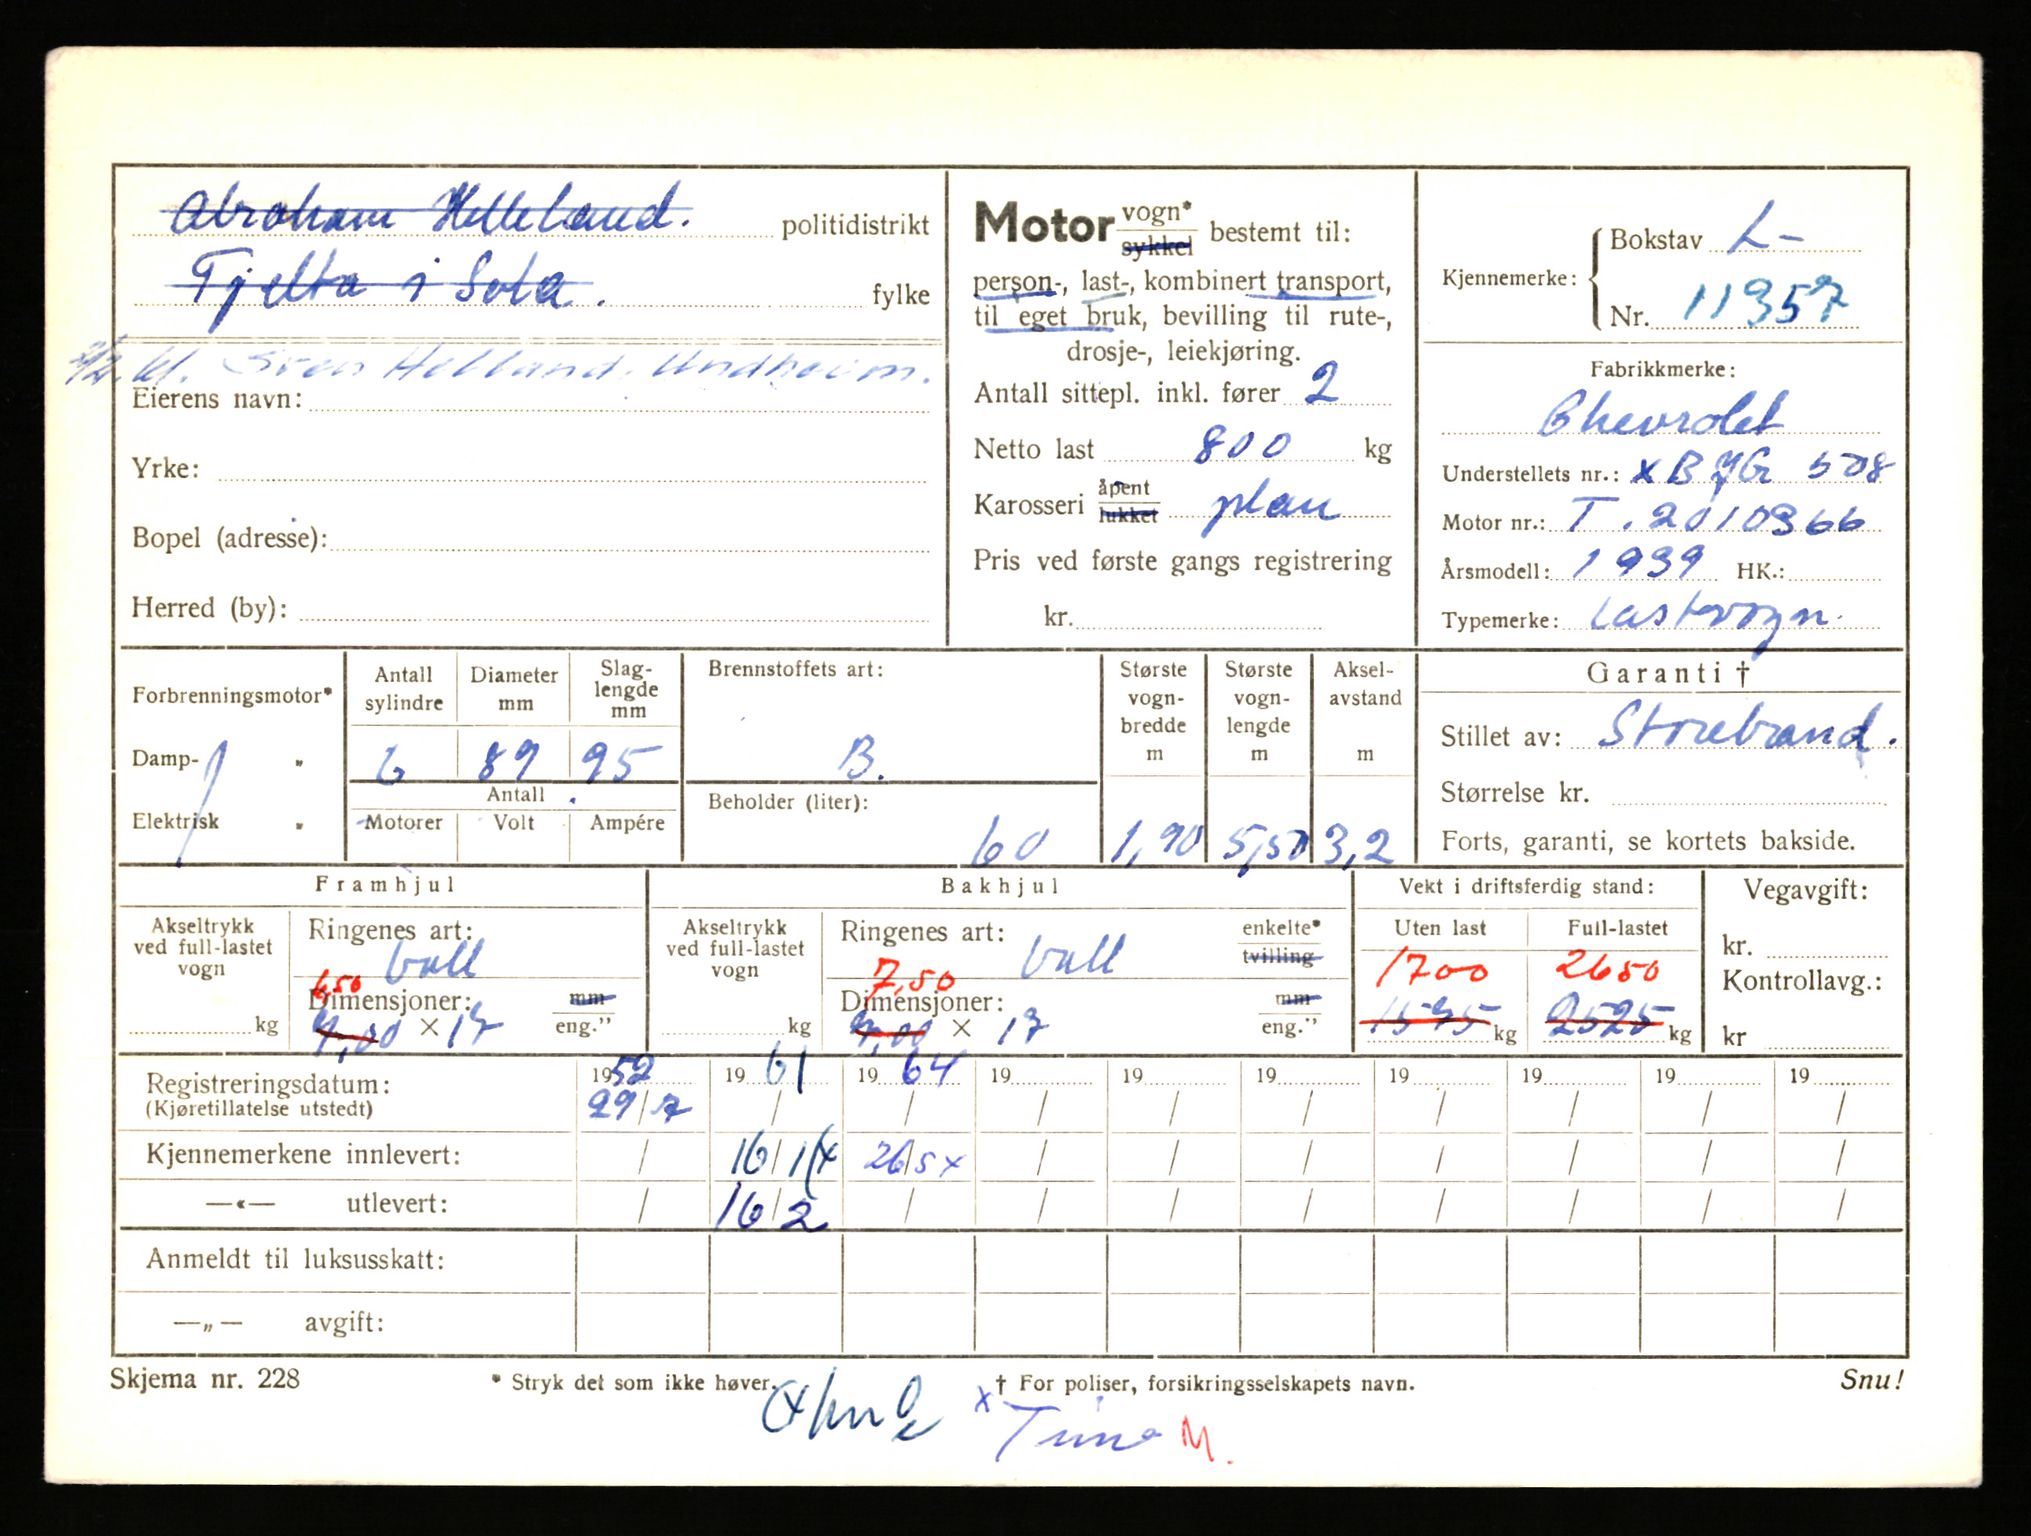 Abraham Helleland. politidistrikt
Tjelta i Sola. fylke
kl. Sven Helland. Undheim.
Eierens navn:
Yrke:
Bopel (adresse):
Herred (by):
Motor vogn* sykkel bestemt til:
person-, last-, kombinert transport,
til eget bruk, bevilling til rute-,
drosje-, leiekjøring.
Antall sittepl. inkl. fører 2
Netto last 800 kg
Karosseri åpent lukket plan
Pris ved første gangs registrering
kr.
Kjennemerke: Bokstav L-
Nr. 11357
Fabrikkmerke:
Chevrolet
Understellets nr.: x B YG 508
Motor nr.: T. 2010366
Årsmodell: 1939 HK.:
Typemerke: Lastvogn.
Forbrenningsmotor*
Damp- „
Elektrisk „
Antall sylindre
Diameter mm
Slag-lengde mm
6 89 95
Antall
Motorer Volt Ampére
Brennstoffets art:
B.
Beholder (liter):
60
Største vogn-bredde m
1,90
Største vogn-lengde m
5,50
Aksel-avstand m
3,2
Garanti †
Stillet av: Storebrand.
Størrelse kr.
Forts, garanti, se kortets bakside.
Framhjul
Akseltrykk ved full-lastet vogn
kg
Ringenes art:
ball
6,50
Dimensjoner: mm
7,00 × 17 eng.”
Bakhjul
Akseltrykk ved full-lastet vogn
kg
Ringenes art: enkelte*
ball tvilling
7,50
Dimensjoner: mm
7,00 × 17 eng.”
Vekt i driftsferdig stand:
Uten last Full-lastet
1700 2650
1575 kg 2525 kg
Vegavgift:
kr.
Kontrollavg.:
kr
Registreringsdatum: 1952 1961 1964 19 19 19 19 19 19 19
(Kjøretillatelse utstedt) 29/7 / / / / / / / / /
Kjennemerkene innlevert: / 16/1 x 26/5 x / / / / / / /
—«— utlevert: / 16/2 / / / / / / / /
Anmeldt til luksusskatt:
—„— avgift:
Skjema nr. 228 * Stryk det som ikke høver. † For poliser, forsikringsselskapets navn. Snu!
x Tima M.